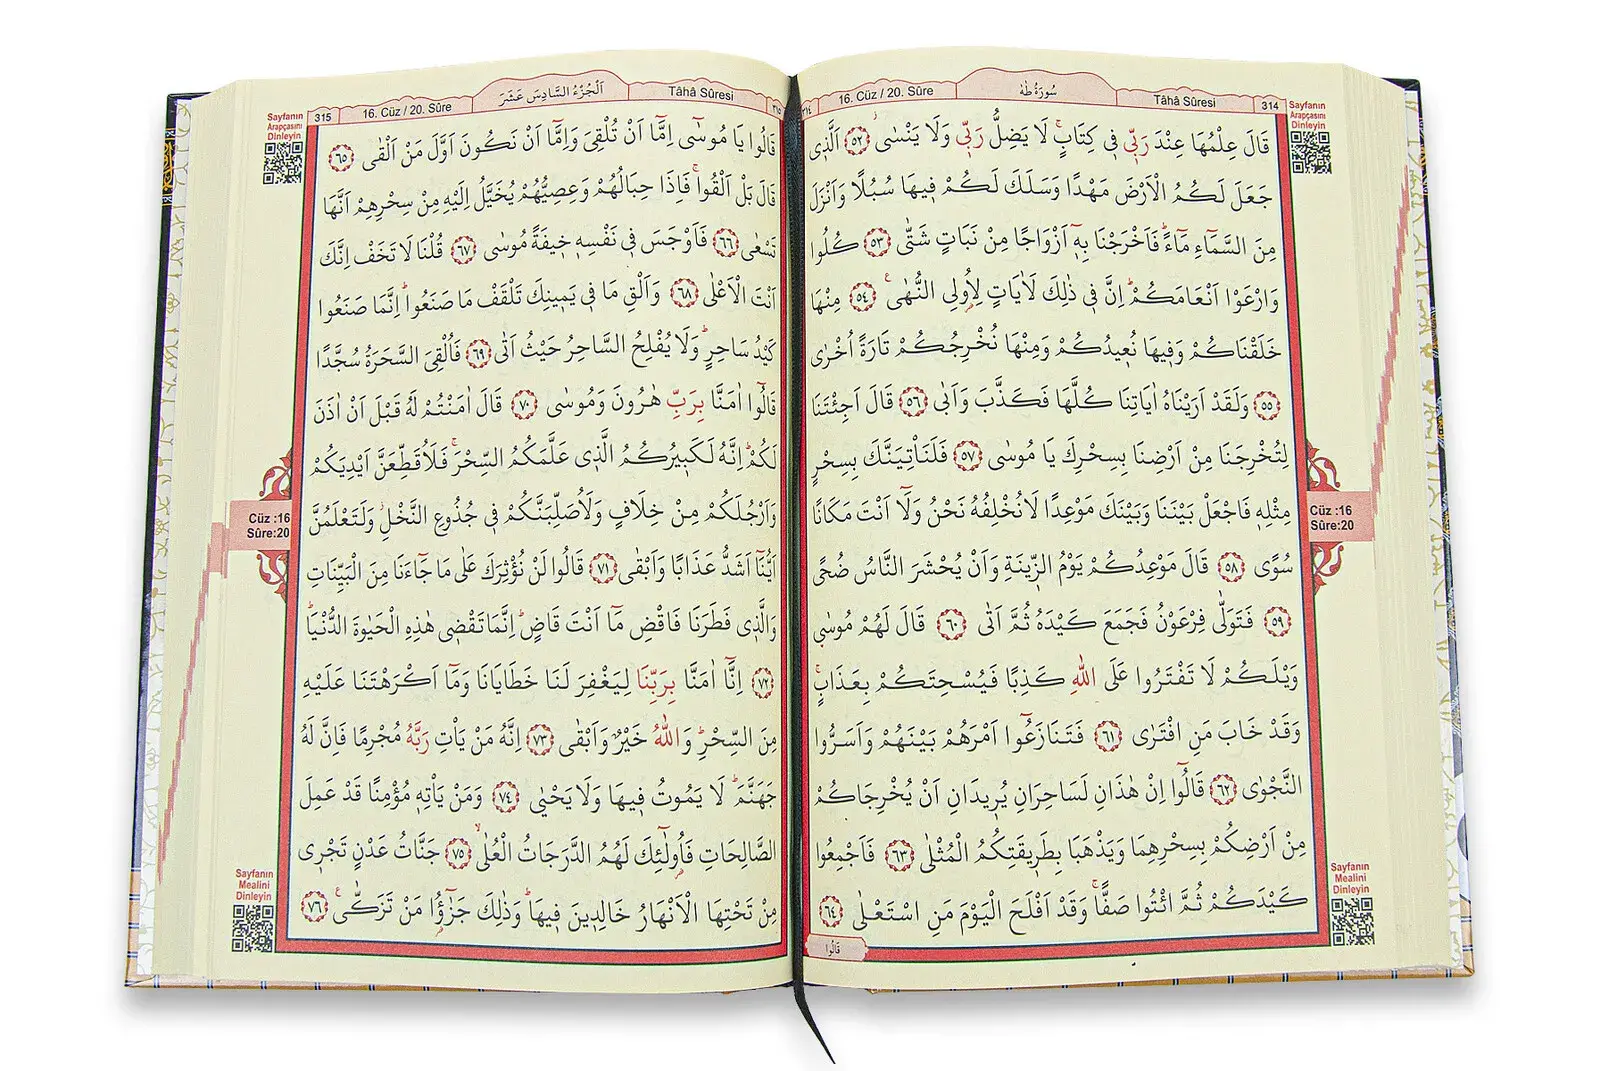 314
Tâhâ Sûresi
سُورَةُ طٰهٰ
16. Cüz / 20. Sûre
٣١٤
Sayfanın
Arapçasını
Dinleyin
قَالَ عِلْمُهَا عِنْدَ رَبّ۪ي ف۪ي كِتَابٍۚ لَا يَضِلُّ رَبّ۪ي وَلَا يَنْسٰىۘ ﴿٥٢﴾ اَلَّذ۪ي
جَعَلَ لَكُمُ الْاَرْضَ مَهْدًا وَسَلَكَ لَكُمْ ف۪يهَا سُبُلًا وَاَنْزَلَ
مِنَ السَّمَٓاءِ مَٓاءًۜ فَاَخْرَجْنَا بِه۪ٓ اَزْوَاجًا مِنْ نَبَاتٍ شَتّٰى ﴿٥٣﴾ كُلُوا
وَارْعَوْا اَنْعَامَكُمْۜ اِنَّ ف۪ي ذٰلِكَ لَاٰيَاتٍ لِاُو۬لِي النُّهٰى۟ ﴿٥٤﴾ مِنْهَا
خَلَقْنَاكُمْ وَف۪يهَا نُع۪يدُكُمْ وَمِنْهَا نُخْرِجُكُمْ تَارَةً اُخْرٰى
﴿٥٥﴾ وَلَقَدْ اَرَيْنَاهُ اٰيَاتِنَا كُلَّهَا فَكَذَّبَ وَاَبٰى ﴿٥٦﴾ قَالَ اَجِئْتَنَا
لِتُخْرِجَنَا مِنْ اَرْضِنَا بِسِحْرِكَ يَا مُوسٰى ﴿٥٧﴾ فَلَنَأْتِيَنَّكَ بِسِحْرٍ
مِثْلِه۪ فَاجْعَلْ بَيْنَنَا وَبَيْنَكَ مَوْعِدًا لَا نُخْلِفُهُ نَحْنُ وَلَٓا اَنْتَ مَكَانًا
سُوًى ﴿٥٨﴾ قَالَ مَوْعِدُكُمْ يَوْمُ الزّ۪ينَةِ وَاَنْ يُحْشَرَ النَّاسُ ضُحًى
﴿٥٩﴾ فَتَوَلّٰى فِرْعَوْنُ فَجَمَعَ كَيْدَهُ ثُمَّ اَتٰى ﴿٦٠﴾ قَالَ لَهُمْ مُوسٰى
وَيْلَكُمْ لَا تَفْتَرُوا عَلَى اللّٰهِ كَذِبًا فَيُسْحِتَكُمْ بِعَذَابٍۚ
وَقَدْ خَابَ مَنِ افْتَرٰى ﴿٦١﴾ فَتَنَازَعُٓوا اَمْرَهُمْ بَيْنَهُمْ وَاَسَرُّوا
النَّجْوٰى ﴿٦٢﴾ قَالُٓوا اِنْ هٰذَانِ لَسَاحِرَانِ يُر۪يدَانِ اَنْ يُخْرِجَاكُمْ
مِنْ اَرْضِكُمْ بِسِحْرِهِمَا وَيَذْهَبَا بِطَر۪يقَتِكُمُ الْمُثْلٰى ﴿٦٣﴾ فَاَجْمِعُوا
كَيْدَكُمْ ثُمَّ ائْتُوا صَفًّاۚ وَقَدْ اَفْلَحَ الْيَوْمَ مَنِ اسْتَعْلٰى ﴿٦٤﴾
قَالُوا
Cüz :16
Sûre:20
Sayfanın
Mealini
Dinleyin
٣١٥
Tâhâ Sûresi
اَلْجُزْءُ السَّادِسَ عَشَرَ
16. Cüz / 20. Sûre
315
Sayfanın
Arapçasını
Dinleyin
قَالُوا يَا مُوسٰٓى اِمَّٓا اَنْ تُلْقِيَ وَاِمَّٓا اَنْ نَكُونَ اَوَّلَ مَنْ اَلْقٰى ﴿٦٥﴾
قَالَ بَلْ اَلْقُواۚ فَاِذَا حِبَالُهُمْ وَعِصِيُّهُمْ يُخَيَّلُ اِلَيْهِ مِنْ سِحْرِهِمْ اَنَّهَا
تَسْعٰى ﴿٦٦﴾ فَاَوْجَسَ ف۪ي نَفْسِه۪ خ۪يفَةً مُوسٰى ﴿٦٧﴾ قُلْنَا لَا تَخَفْ اِنَّكَ
اَنْتَ الْاَعْلٰى ﴿٦٨﴾ وَاَلْقِ مَا ف۪ي يَم۪ينِكَ تَلْقَفْ مَا صَنَعُواۜ اِنَّمَا صَنَعُوا
كَيْدُ سَاحِرٍۜ وَلَا يُفْلِحُ السَّاحِرُ حَيْثُ اَتٰى ﴿٦٩﴾ فَاُلْقِيَ السَّحَرَةُ سُجَّدًا
قَالُٓوا اٰمَنَّا بِرَبِّ هٰرُونَ وَمُوسٰى ﴿٧٠﴾ قَالَ اٰمَنْتُمْ لَهُ قَبْلَ اَنْ اٰذَنَ
لَكُمْۜ اِنَّهُ لَكَب۪يرُكُمُ الَّذ۪ي عَلَّمَكُمُ السِّحْرَۚ فَلَاُقَطِّعَنَّ اَيْدِيَكُمْ
وَاَرْجُلَكُمْ مِنْ خِلَافٍ وَلَاُصَلِّبَنَّكُمْ ف۪ي جُذُوعِ النَّخْلِۘ وَلَتَعْلَمُنَّ
اَيُّنَٓا اَشَدُّ عَذَابًا وَاَبْقٰى ﴿٧١﴾ قَالُوا لَنْ نُؤْثِرَكَ عَلٰى مَا جَٓاءَنَا مِنَ الْبَيِّنَاتِ
وَالَّذ۪ي فَطَرَنَا فَاقْضِ مَٓا اَنْتَ قَاضٍۜ اِنَّمَا تَقْض۪ي هٰذِهِ الْحَيٰوةَ الدُّنْيَاۜ
﴿٧٢﴾ اِنَّٓا اٰمَنَّا بِرَبِّنَا لِيَغْفِرَ لَنَا خَطَايَانَا وَمَٓا اَكْرَهْتَنَا عَلَيْهِ
مِنَ السِّحْرِۜ وَاللّٰهُ خَيْرٌ وَاَبْقٰى ﴿٧٣﴾ اِنَّهُ مَنْ يَأْتِ رَبَّهُ مُجْرِمًا فَاِنَّ لَهُ
جَهَنَّمَۜ لَا يَمُوتُ ف۪يهَا وَلَا يَحْيٰى ﴿٧٤﴾ وَمَنْ يَأْتِه۪ مُؤْمِنًا قَدْ عَمِلَ
الصَّالِحَاتِ فَاُو۬لٰٓئِكَ لَهُمُ الدَّرَجَاتُ الْعُلٰىۙ ﴿٧٥﴾ جَنَّاتُ عَدْنٍ تَجْر۪ي
مِنْ تَحْتِهَا الْاَنْهَارُ خَالِد۪ينَ ف۪يهَاۜ وَذٰلِكَ جَزٰٓؤُ۬ا مَنْ تَزَكّٰى۟ ﴿٧٦﴾
Cüz :16
Sûre:20
Sayfanın
Mealini
Dinleyin